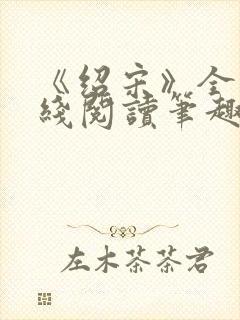 《绍宋》全
綫閱讀筆趣
左木茶茶君